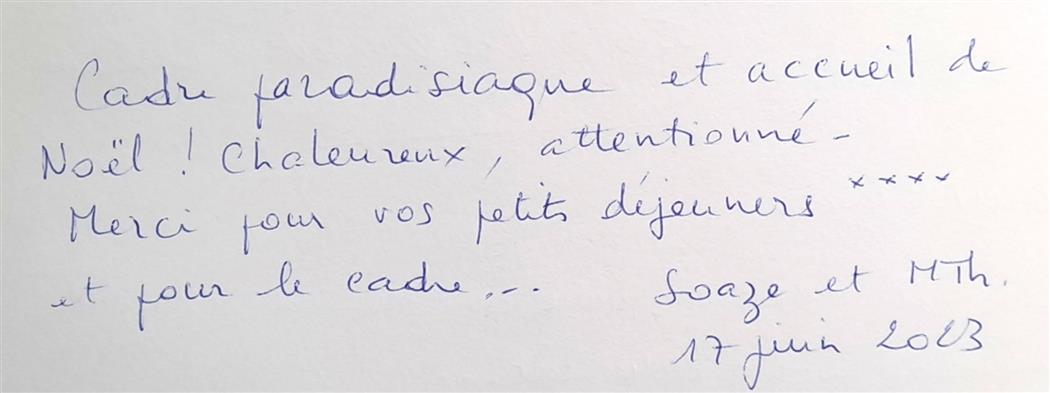 Cadre paradisiaque et accueil de
Noël ! Chaleureux, attentionné -
Merci pour vos petits déjeuners ××××
et pour le cadre...
Soaze et MTh.
17 juin 2023